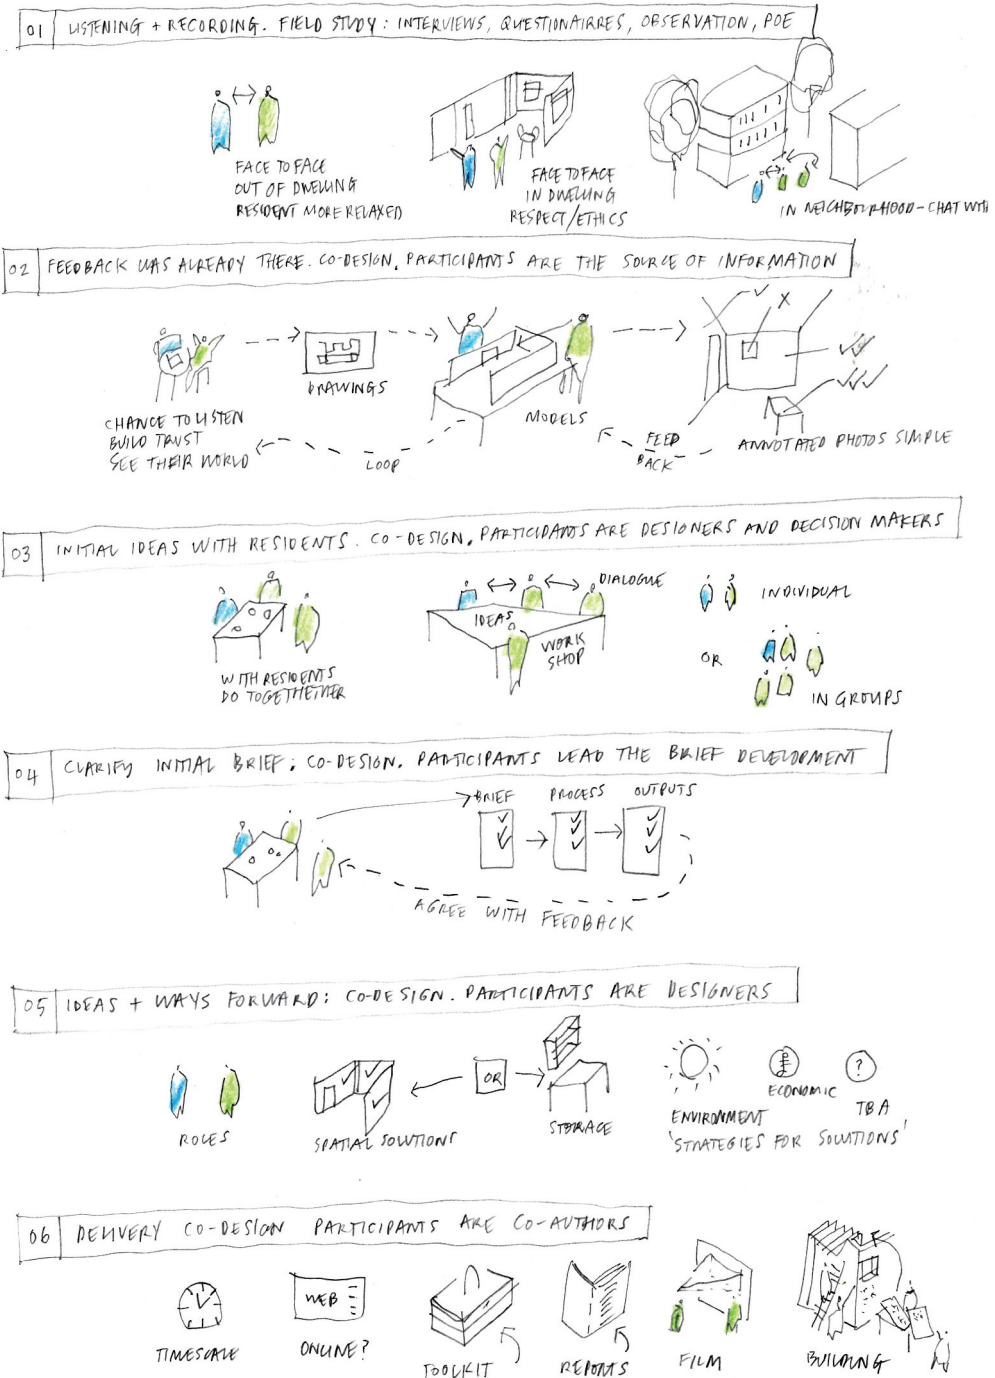 01 LISTENING + RECORDING. FIELD STUDY: INTERVIEWS, QUESTIONAIRRES, OBSERVATION, POE
FACE TO FACE
OUT OF DWELLING
RESIDENT MORE RELAXED
FACE TO FACE
IN DWELLING
RESPECT/ETHICS
IN NEIGHBOURHOOD - CHAT WITH
02 FEEDBACK WAS ALREADY THERE. CO-DESIGN. PARTICIPANTS ARE THE SOURCE OF INFORMATION
CHANCE TO LISTEN
BUILD TRUST
SEE THEIR WORLD
DRAWINGS
LOOP
MODELS
FEED
BACK
X
ANNOTATED PHOTOS SIMPLE
03 INITIAL IDEAS WITH RESIDENTS. CO-DESIGN. PARTICIPANTS ARE DESIGNERS AND DECISION MAKERS
WITH RESIDENTS
DO TOGETHETHER
DIALOGUE
IDEAS
WORK
SHOP
INDIVIDUAL
OR
IN GROUPS
04 CLARIFY INITIAL BRIEF; CO-DESIGN. PARTICIPANTS LEAD THE BRIEF DEVELOPMENT
BRIEF PROCESS OUTPUTS
AGREE WITH FEEDBACK
05 IDEAS + WAYS FORWARD: CO-DESIGN. PARTICIPANTS ARE DESIGNERS
ROLES
SPATIAL SOLUTIONS
OR
STORAGE
ENVIRONMENT
£
ECONOMIC
?
TBA
'STRATEGIES FOR SOLUTIONS'
06 DELIVERY CO-DESIGN PARTICIPANTS ARE CO-AUTHORS
TIMESCALE
WEB
ONLINE?
TOOLKIT
REPORTS
FILM
BUILDING